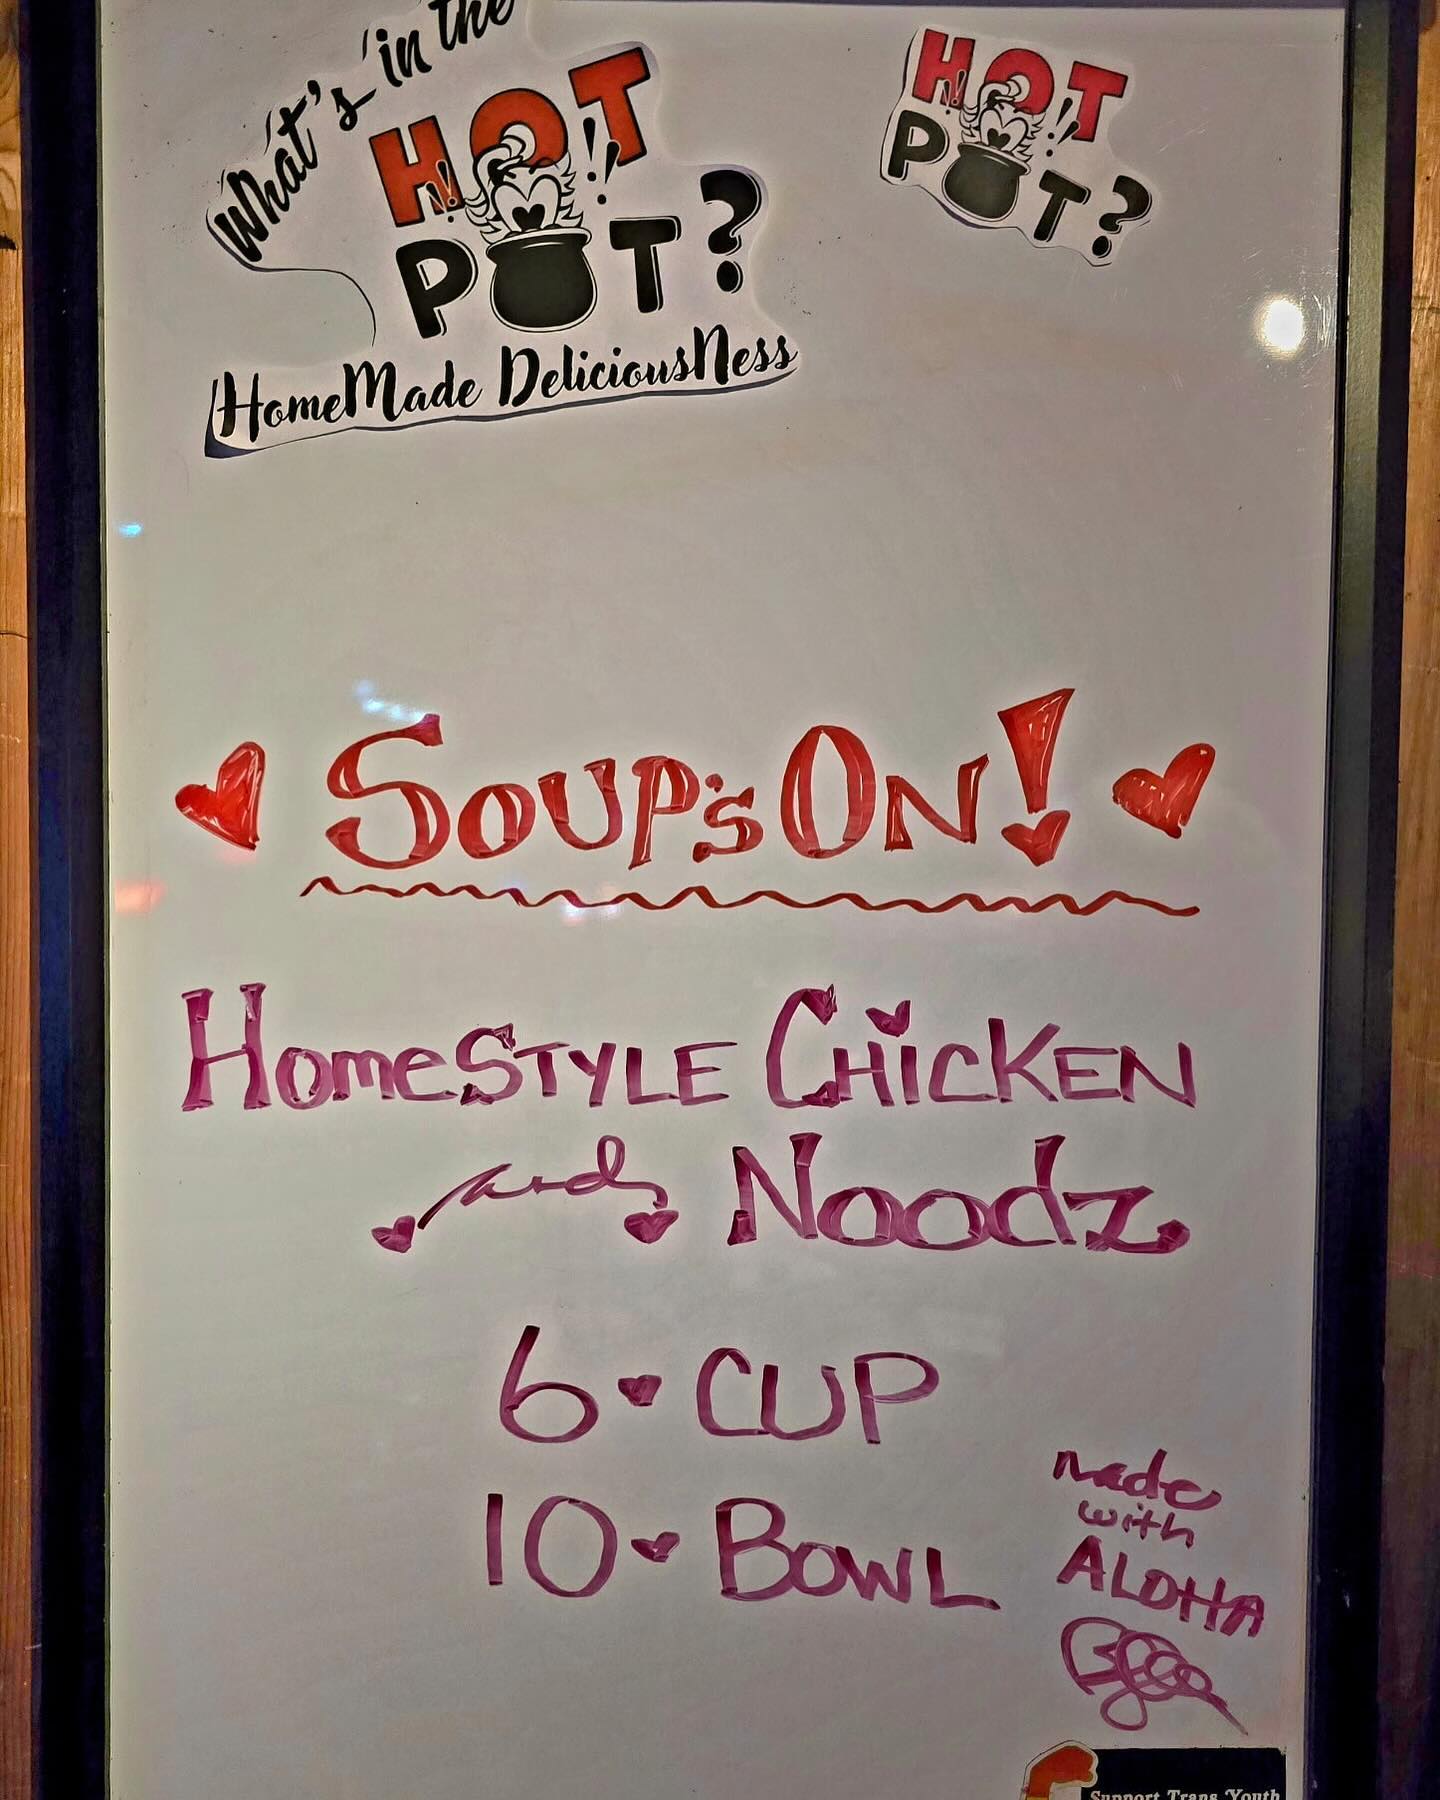 What's in the
HOT
POT?
HomeMade DeliciousNess
HOT
POT?
Soup's On!
HomeSTYLE CHiCKEN
and Noodz
6 · CUP
10 · BOWL
made
with
ALOHA
Support Trans Youth